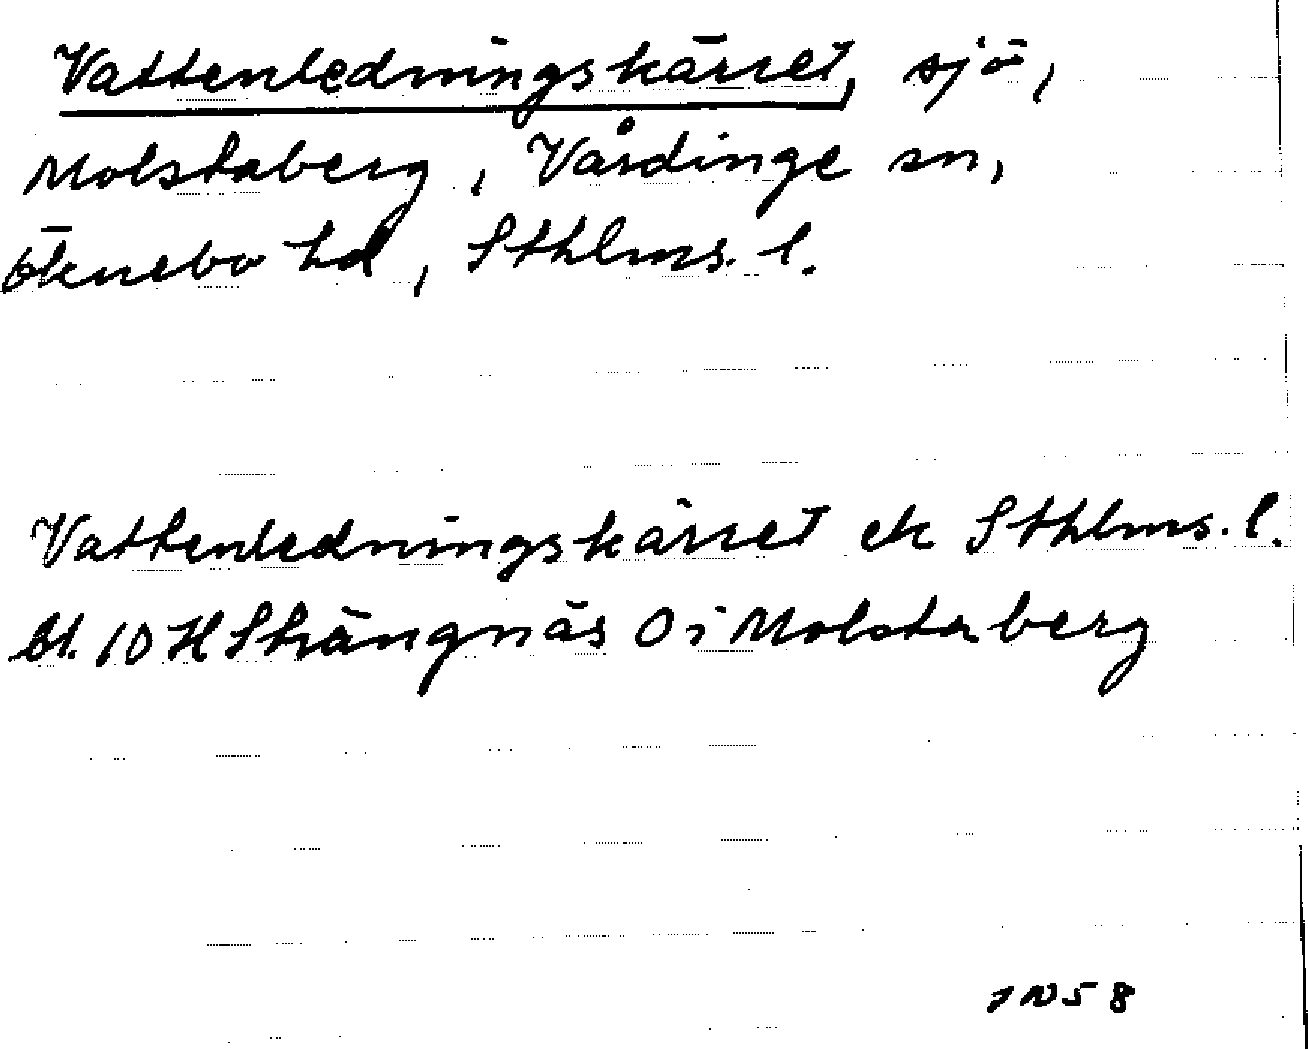 Vattenledningskärret, sjö,
Molstaberg, Vårdinge sn,
Öknebo hd, Sthlms. l.
Vattenledningskärret ek Sthlms. l.
bl. 10 H Strängnäs O i Molstaberg
1N58